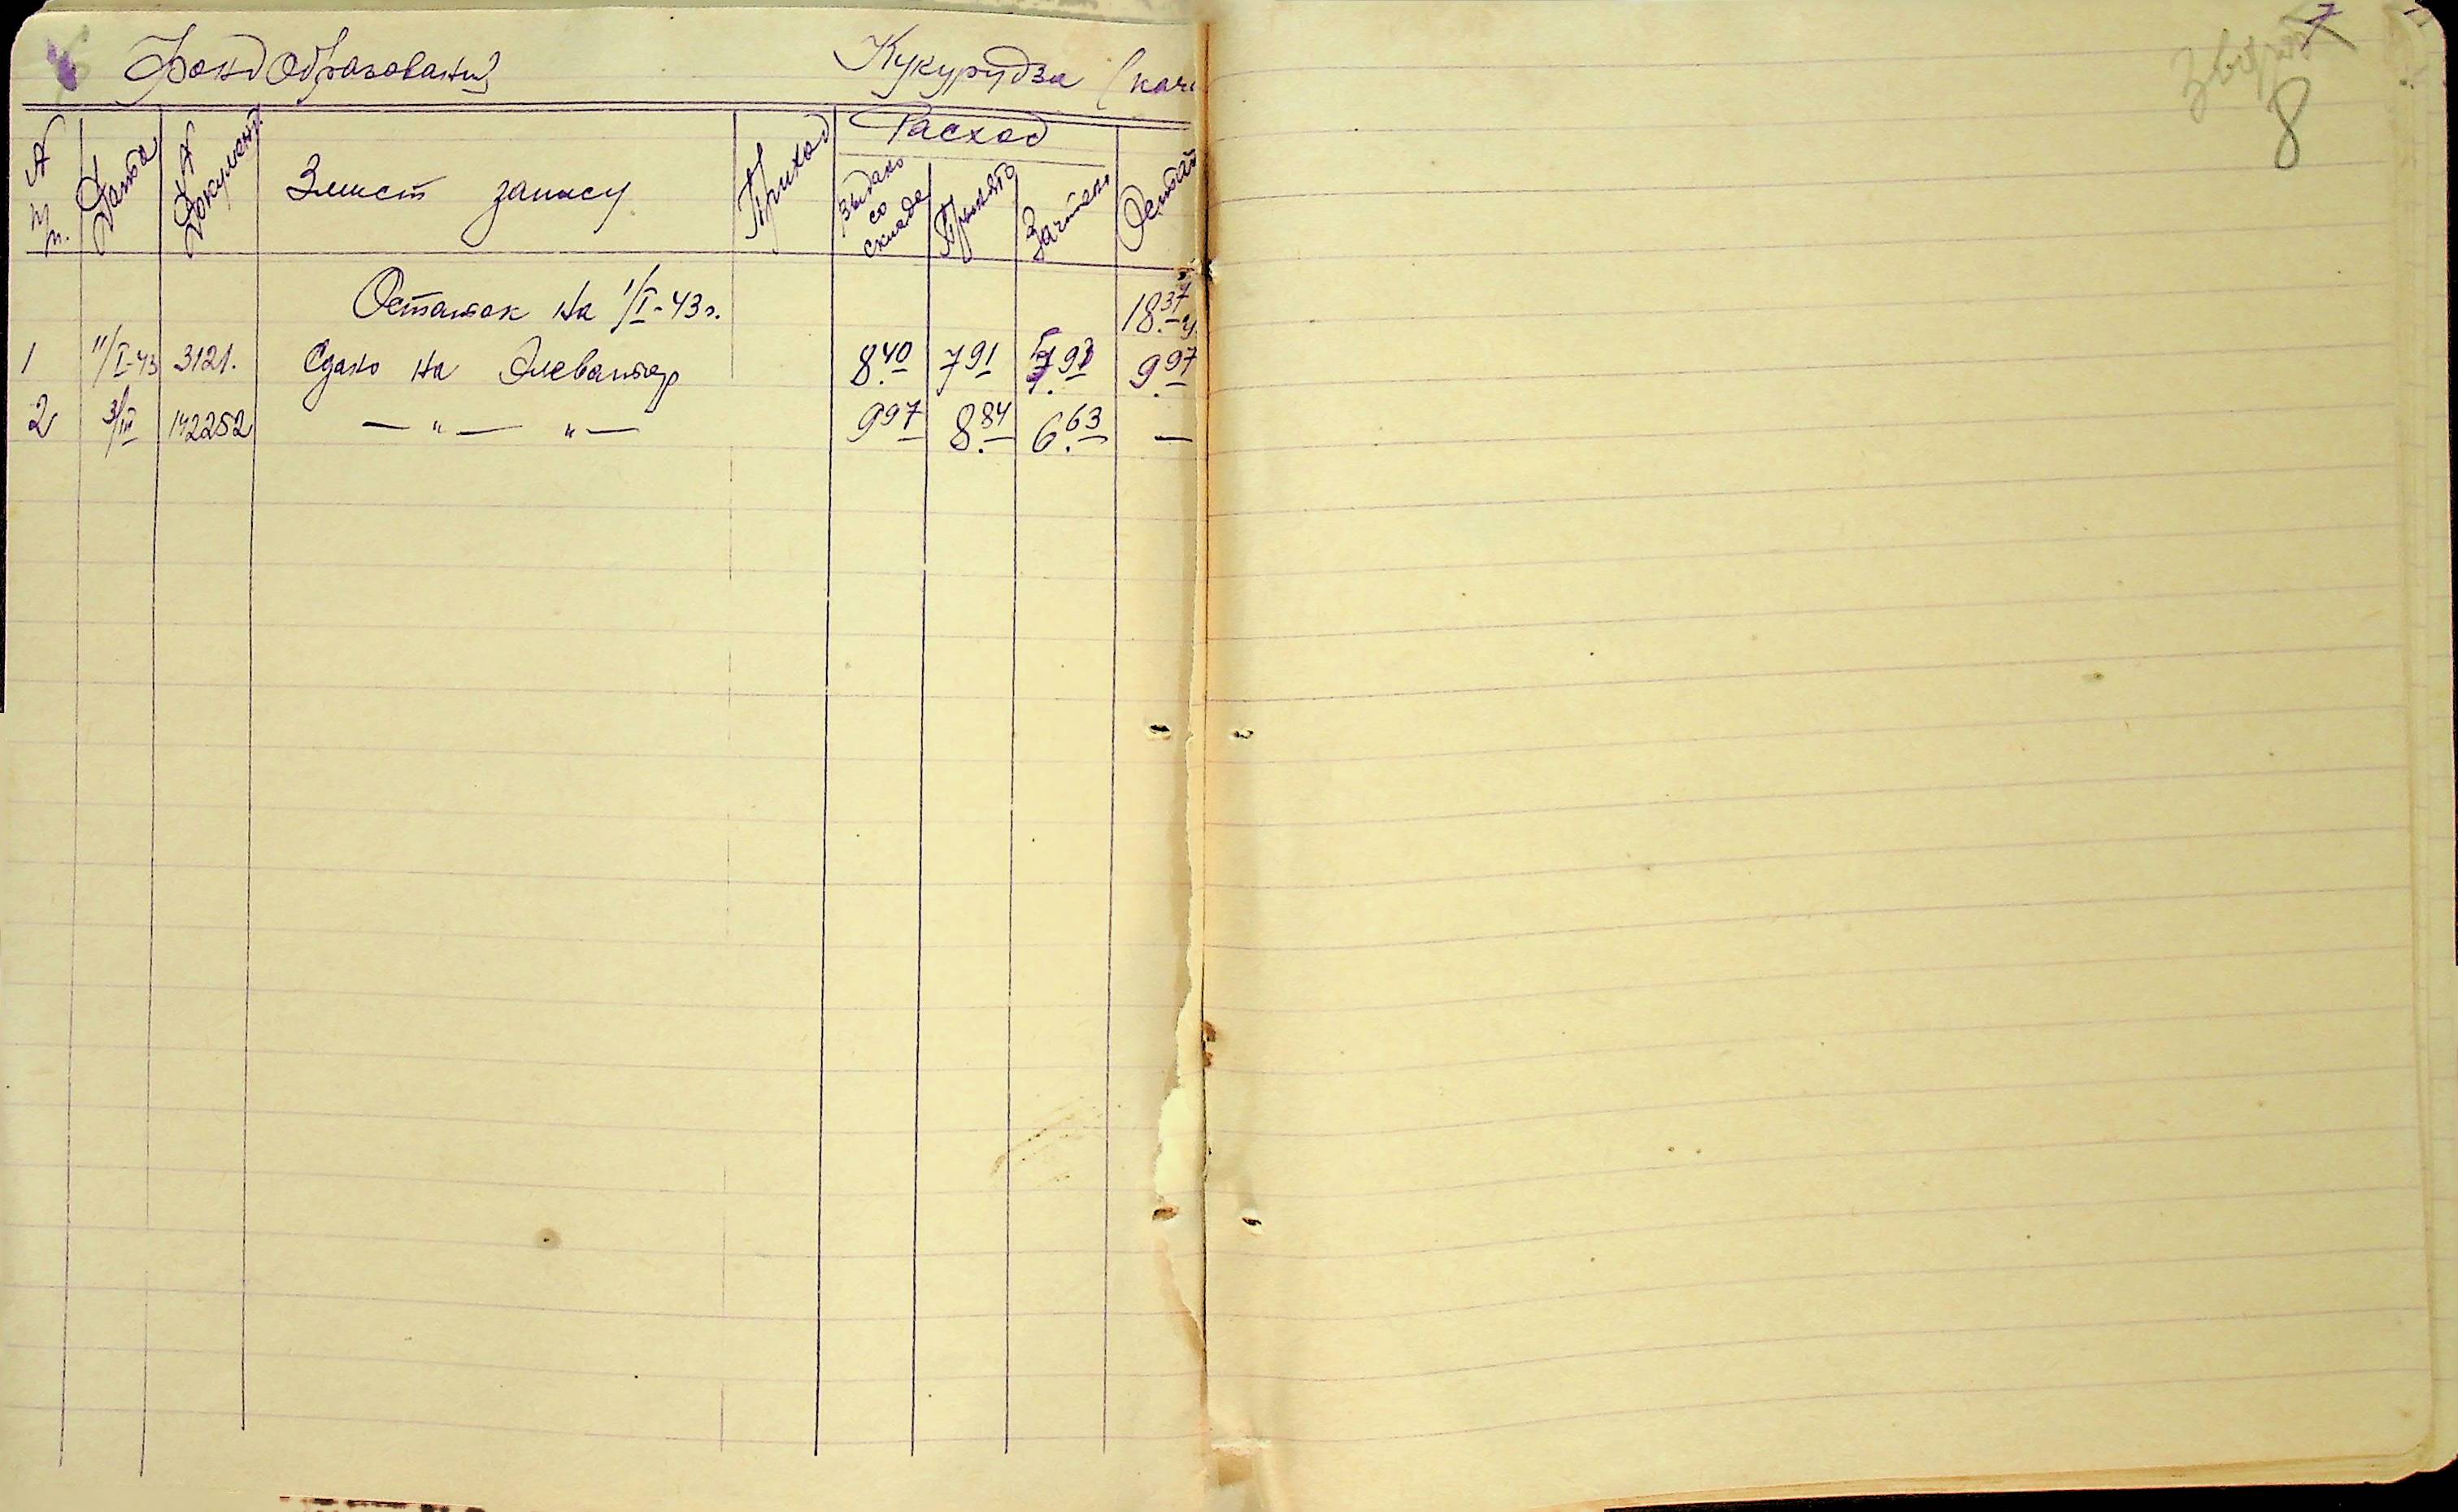 Фондобразований Кукурудза (кач
№ п/п. Дата № Документ. Змист запису Приход Расход Остат
Выдано со склада Принято Зачтено
Остаток на 1/I-43 г. 18.37 ц.
1 11/I-43 3121. Сдано на Элеватор 8.40 7 91 9.97
2 3/III 142252 — " — " — 9 97 8.84 6.63 —
зворот
8